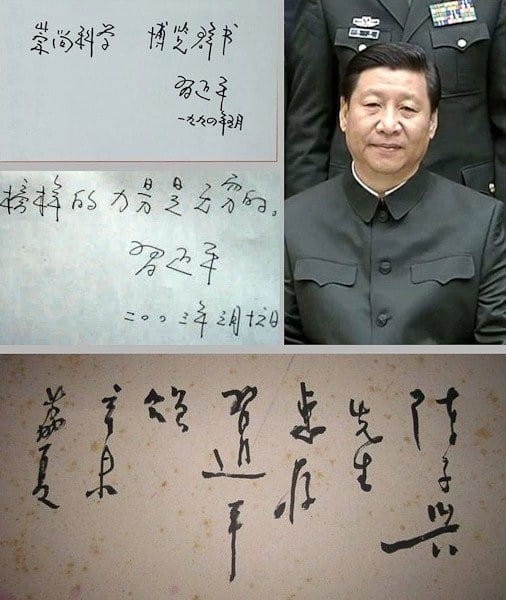 崇尚科学 博览群书
习近平
一九九〇年五月
榜样的力量是无穷的。
习近平
二〇〇三年三月
子兴
先生
惠存
習近平
辛未
荔夏